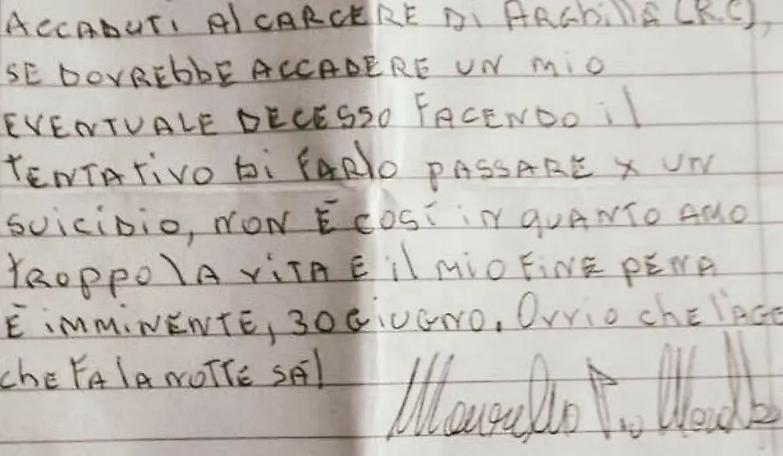 ACCADUTI AL CARCERE DI ARGHILLÀ (RC),
SE DOVREBBE ACCADERE UN MIO
EVENTUALE DECESSO FACENDO IL
TENTATIVO DI FARLO PASSARE X UN
SUICIDIO, NON È COSÌ IN QUANTO AMO
TROPPO LA VITA E IL MIO FINE PENA
È IMMINENTE, 30 GIUGNO. OVVIO CHE L'AGE
CHE FA LA NOTTE SA!